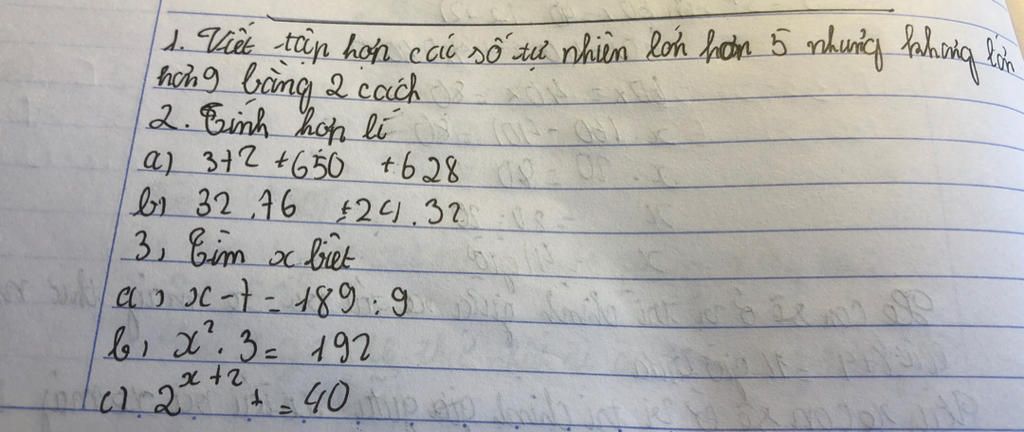 1. Viết tập hợp các số tự nhiên lớn hơn 5 nhưng không lớn
hơn 9 bằng 2 cách
2. Tính hợp lí
a) 372 + 650 + 628
b) 32 . 76 + 24 . 32
3, Tìm x biết
a) x - 7 = 189 : 9
b) x² . 3 = 192
c) 2^{x+2} + = 40